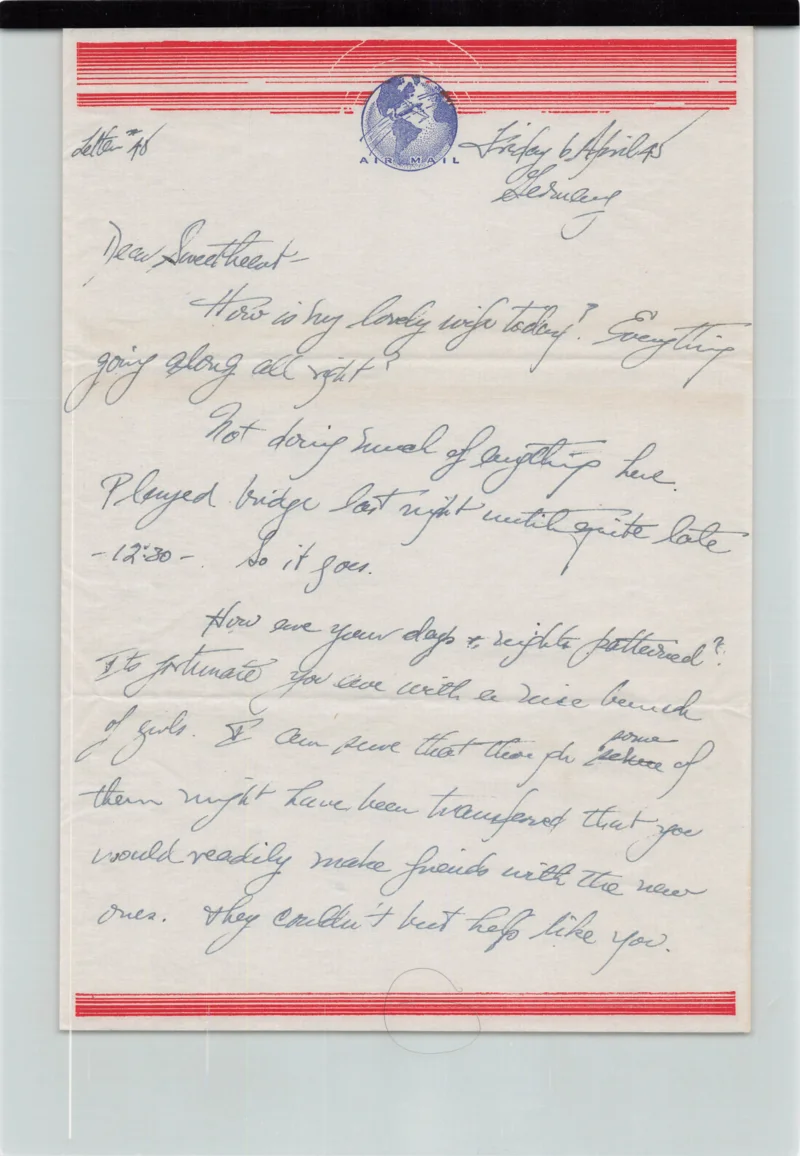 Letter #48
AIR MAIL
Friday 6 April 45
Germany
Dear Sweetheart -
How is my lovely wife today? Everything
going along all right?
Not doing much of anything here.
Played bridge last night until quite late
- 12:30 -. So it goes.
How are your days & nights patterned?
Its fortunate you are with a nice bunch
of girls. I am sure that though some of
them might have been transferred that you
would readily make friends with the new
ones. They couldn't but help like you.